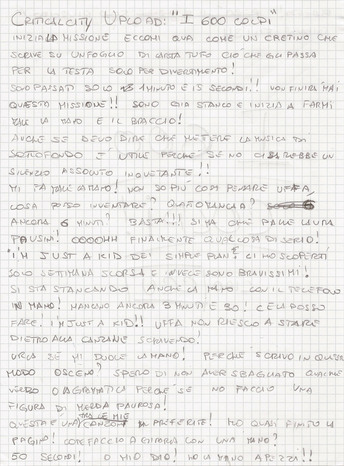 CRITICALCITY UPLOAD: "I 600 COLPI"
INIZIA LA MISSIONE ECCOMI QUA COME UN CRETINO CHE
SCRIVE SU UN FOGLIO DI CARTA TUTO CIÒ CHE GLI PASSA
PER LA TESTA SOLO PER DIVERTIMENTO!
SONO PASSATI SOLO 3 MINUTO E 15 SECONDI!! NON FINIRÀ MAI
QUESTA MISSIONE!! SONO GIA STANCO E INIZIA A FARMI
MALE LA MANO E IL BRACCIO!
ANCHE SE DEVO DIRE CHE METTERE LA MUSICA DI
SOTTOFONDO È UTILE PERCHÈ SE NO CI SAREBBE UN
SILENZIO ASSOLUTO INQUETANTE!!
MI FA MALE LA MANO! NON SO PIÙ COSA PENSARE UFFA
COSA POSSO INVENTARE? QUANTO MANCA?
ANCORA 6 MINUTI? BASTA!!!
PAUSINI! OOOOHH FINALMENTE QUALCOSA DI SERIO!
I'M JUST A KID DEI SIMPLE PLAN! LI HO SCOPERTI
SOLO SETTIMANA SCORSA E INVECE SONO BRAVISSIMI!
SI STA STANCANDO ANCHE LA MANO CON IL TELEFONO
IN MANO! MANCANO ANCORA 3 MINUTI E 30! CE LA POSSO
FARE. I'M JUST A KID!! UFFA NON RIESCO A STARE
DIETRO ALLA CANZONE SCRIVENDO!
URCA SE MI DUOLE LA MANO! PERCHÈ SCRIVO IN QUESTO
MODO OSCENO? SPERO DI NON AVER SBAGLIATO QUALCHE
VERBO O GRAMMATICA PERCHÈ SE NO FACCIO UNA
FIGURA DI MERDA PAUROSA!
QUESTA È UNA TRA LE MIE CANZONI PREFERITE! HO QUASI FINITO LA
PAGINA! COME FACCIO A GIRARLA CON UNA MANO?
50 SECONDI! O MIO DIO! HO LA MANO A PEZZI!!